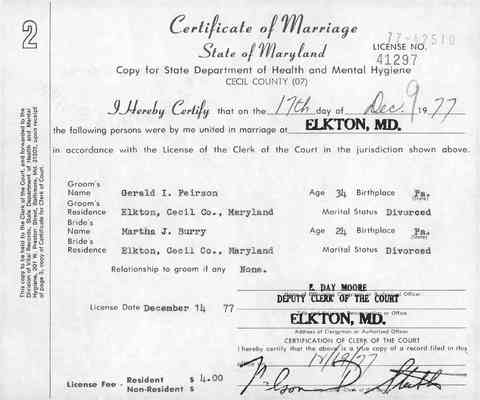 2
Certificate of Marriage
77-42510
State of Maryland
LICENSE NO.
41297
Copy for State Department of Health and Mental Hygiene
CECIL COUNTY (07)
I Hereby Certify that on the 17th day of Dec. 9 1977
the following persons were by me united in marriage at ELKTON, MD.
in accordance with the License of the Clerk of the Court in the jurisdiction shown above.
Groom's
Name Gerald I. Peirson Age 34 Birthplace Pa.
(State)
Groom's
Residence Elkton, Cecil Co., Maryland Marital Status Divorced
Bride's
Name Martha J. Burry Age 24 Birthplace Pa.
(State)
Bride's
Residence Elkton, Cecil Co., Maryland Marital Status Divorced
Relationship to groom if any None.
E. DAY MOORE
DEPUTY CLERK OF THE COURT
License Date December 14 77
ELKTON, MD.
Address of Clergyman or Authorized Officer
CERTIFICATION OF CLERK OF THE COURT
I hereby certify that the above is a true copy of a record filed in this
office 12/19/77
License Fee - Resident $ 4.00
Non-Resident $
This copy to be held by the Clerk of the Court, and forwarded to the
Division of Vital Records, State Department of Health and Mental
Hygiene, 201 W. Preston Street, Baltimore, Md. 21201, upon receipt
of page 3, copy of Certificate for Clerk of Court.